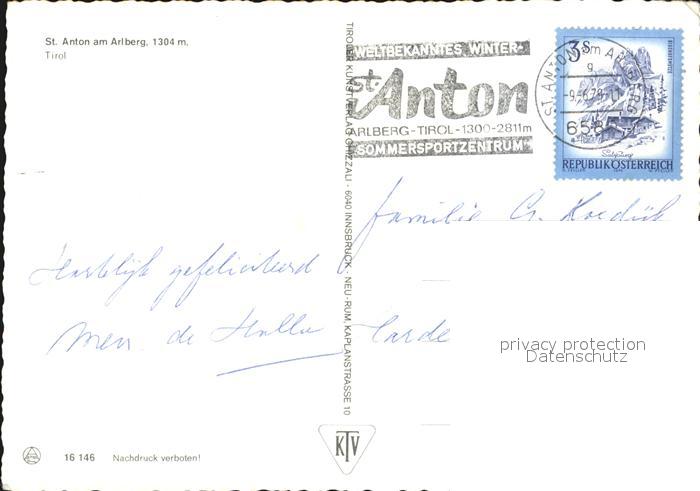 St. Anton am Arlberg, 1304 m,
Tirol
WELTBEKANNTES WINTER-
St. Anton
ARLBERG-TIROL-1300-2811m
SOMMERSPORTZENTRUM
ST. ANTON am ARLBERG
6580
3 S
Salzburg
REPUBLIK ÖSTERREICH
TIROLER KUNSTVERLAG CHIZZALI · 6040 INNSBRUCK, NEU-RUM, KAPLANSTRASSE 10
familie G.
Hartelijk gefeliciteerd
de
privacy protection
Datenschutz
KTV
16 146 Nachdruck verboten!